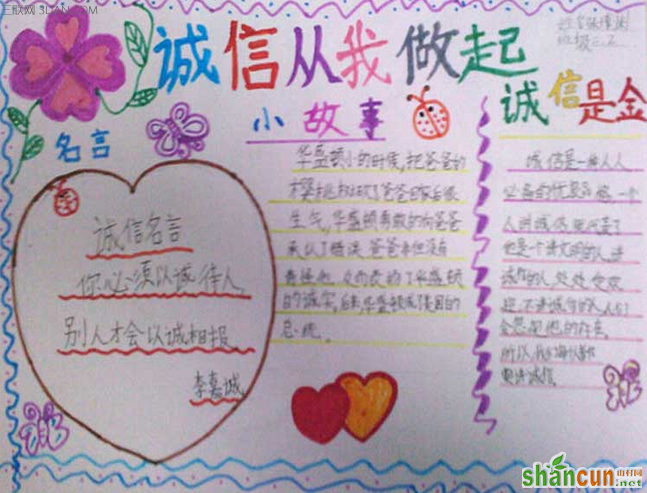 三联网 3LIAN.COM
诚信从我做起
班级二.乙
诚信是金
小故事
名言
诚信名言
你必须以诚待人,
别人才会以诚相报。
李嘉诚
华盛顿小的时候,把爸爸的
樱桃树砍了爸爸回家后很
生气,华盛顿勇敢的向爸爸
承认了错误,爸爸不但没有
责怪他,反而表扬了华盛顿
的诚实,后来,华盛顿成了美国的
总统。
诚信是一种人人
必备的优良品格,一个
人讲诚信,就代表了
他是个讲文明的人。讲
诚信的人,处处受欢
迎,不讲诚信的人,人们
会忽视他的存在。
所以,我们每个人都
要讲诚信。
shancun
山村网
.net